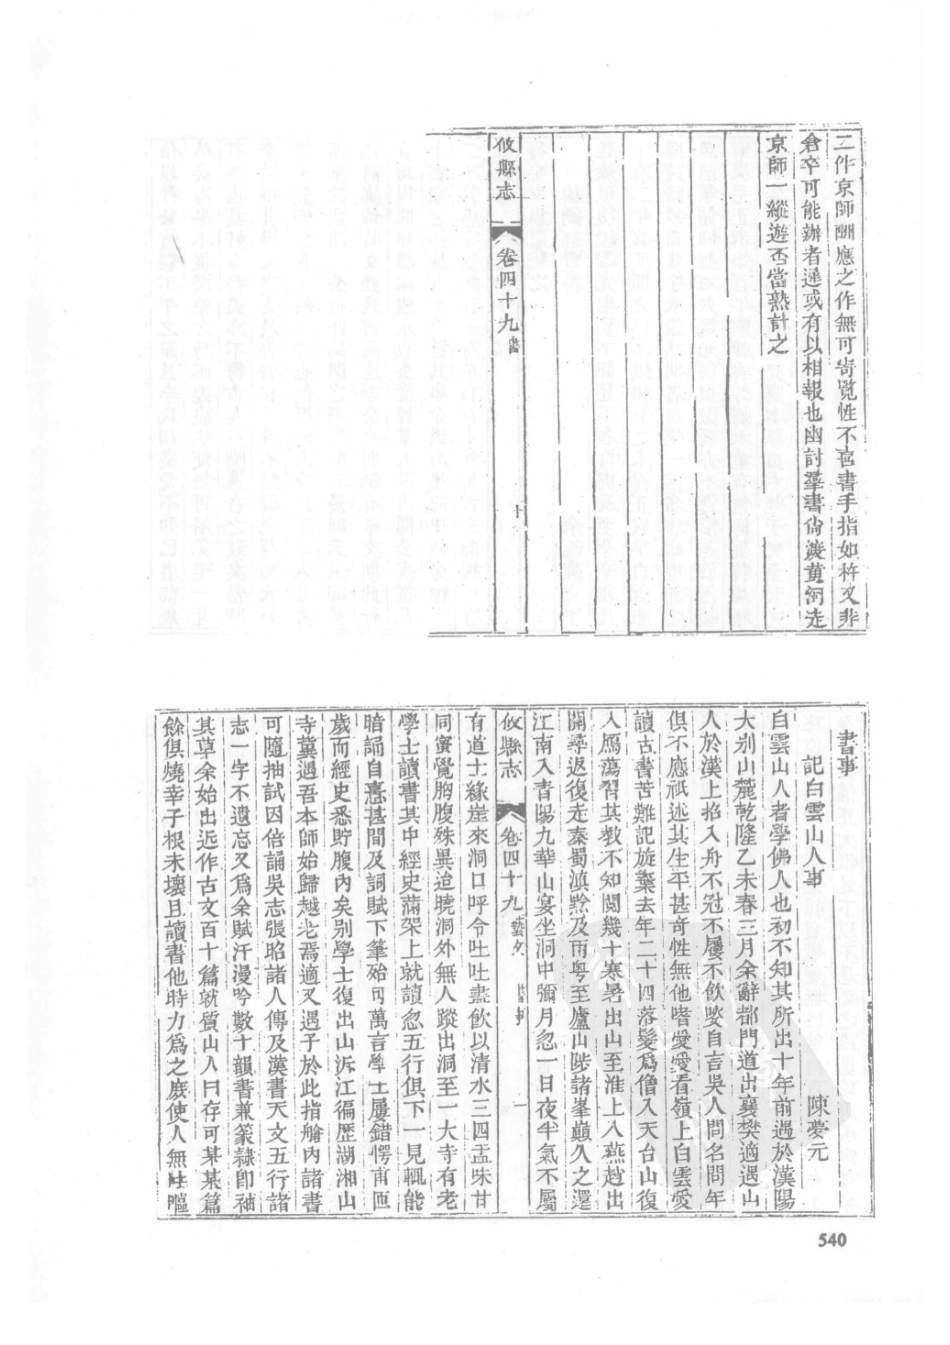 二件京師酬應之作無可寄覽性不喜書手指如杵又非
倉卒可能辦者遲或有以相報也幽討羣書尙渡黃河走
京師一縱遊否當熟計之
攸縣志 卷四十九 書 十
書事
記白雲山人事 陳夢元
白雲山人者學佛人也初不知其所出十年前遇於漢陽
大別山麓乾隆乙未春三月余辭都門道出襄樊適遇山
人於漢上掐入舟不冠不屨不飲噉自言吳人問名問年
俱不應祗述其生平甚奇性無他嗜愛愛看嶺上白雲愛
讀古書苦難記旋棄去年二十四落髮爲僧入天台山復
入鴈蕩習其教不知閱幾十寒暑出山至淮上入燕趙出
關尋返復走秦蜀滇黔及兩粤至廬山陟諸峯巔久之還
江南入青陽九華山宴坐洞中彌月忽一日夜半氣不屬
攸縣志 卷四十九 藝文 書事 一
有道士緣崖來洞口呼令吐吐盡飮以清水三四盂味甘
同蜜覺胸腹殊異迨曉洞外無人蹤出洞至一大寺有老
學士讀書其中經史滿架上就讀忽五行俱下一見輒能
暗誦自憙甚間及詞賦下筆殆可萬言學士屢錯愕甫匝
歲而經史悉貯腹內矣別學士復出山泝江徧歷湖湘山
寺冀遇吾本師始歸越老焉適又遇子於此指艙內諸書
可隨抽試因倍誦吳志張昭諸人傳及漢書天文五行諸
志一字不遺忘又爲余賦汗漫吟數十韻書兼篆隸卽袖
其草余始出近作古文百十篇就質山人曰存可某某篇
餘俱燒幸子根未壞且讀書他時力爲之庶使人無吐嘔
540